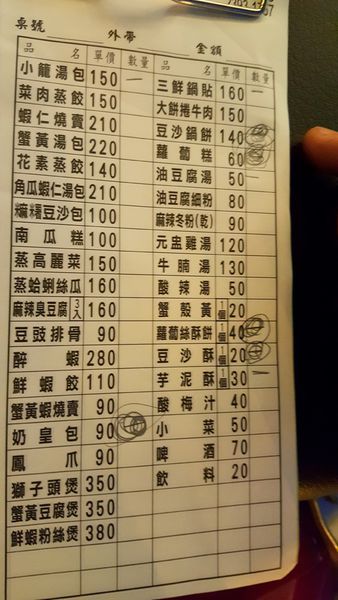 桌號 外帶 金額
品名 單價 數量
小籠湯包 150 一
菜肉蒸餃 150
蝦仁燒賣 210
蟹黃湯包 220
花素蒸餃 140
角瓜蝦仁湯包 210
糯糬豆沙包 100
南瓜糕 100
蒸高麗菜 150
蒸蛤蜊絲瓜 160
麻辣臭豆腐 3入 160
豆豉排骨 90
醉蝦 280
鮮蝦餃 110
蟹黃蝦燒賣 90
奶皇包 90
鳳爪 90
獅子頭煲 350
蟹黃豆腐煲 350
鮮蝦粉絲煲 380
品名 單價 數量
三鮮鍋貼 160 一
大餅捲牛肉 150
豆沙鍋餅 140
蘿蔔糕 60
油豆腐湯 50
油豆腐細粉 80
麻辣冬粉(乾) 90
元盅雞湯 120
牛腩湯 130
酸辣湯 50
蟹殼黃 1個 20
蘿蔔絲酥餅 1個 40
豆沙酥 1個 20
芋泥酥 1個 30 一
酸梅汁 40
小菜 50
啤酒 70
飲料 20